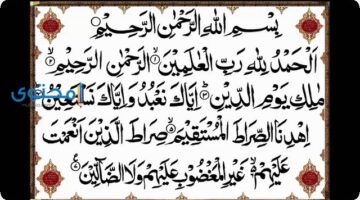 بِسْمِ اللهِ الرَّحْمٰنِ الرَّحِيْمِ
اَلْحَمْدُ لِلّٰهِ رَبِّ الْعٰلَمِيْنَ ۙ الرَّحْمٰنِ الرَّحِيْمِ ۙ
مٰلِكِ يَوْمِ الدِّيْنِ ؕ اِيَّاكَ نَعْبُدُ وَاِيَّاكَ نَسْتَعِيْنُ ؕ
اِهْدِنَا الصِّرَاطَ الْمُسْتَقِيْمَ ۙ صِرَاطَ الَّذِيْنَ اَنْعَمْتَ
عَلَيْهِمْ ۙ غَيْرِ الْمَغْضُوْبِ عَلَيْهِمْ وَلَا الضَّآلِّيْنَ
محتوى